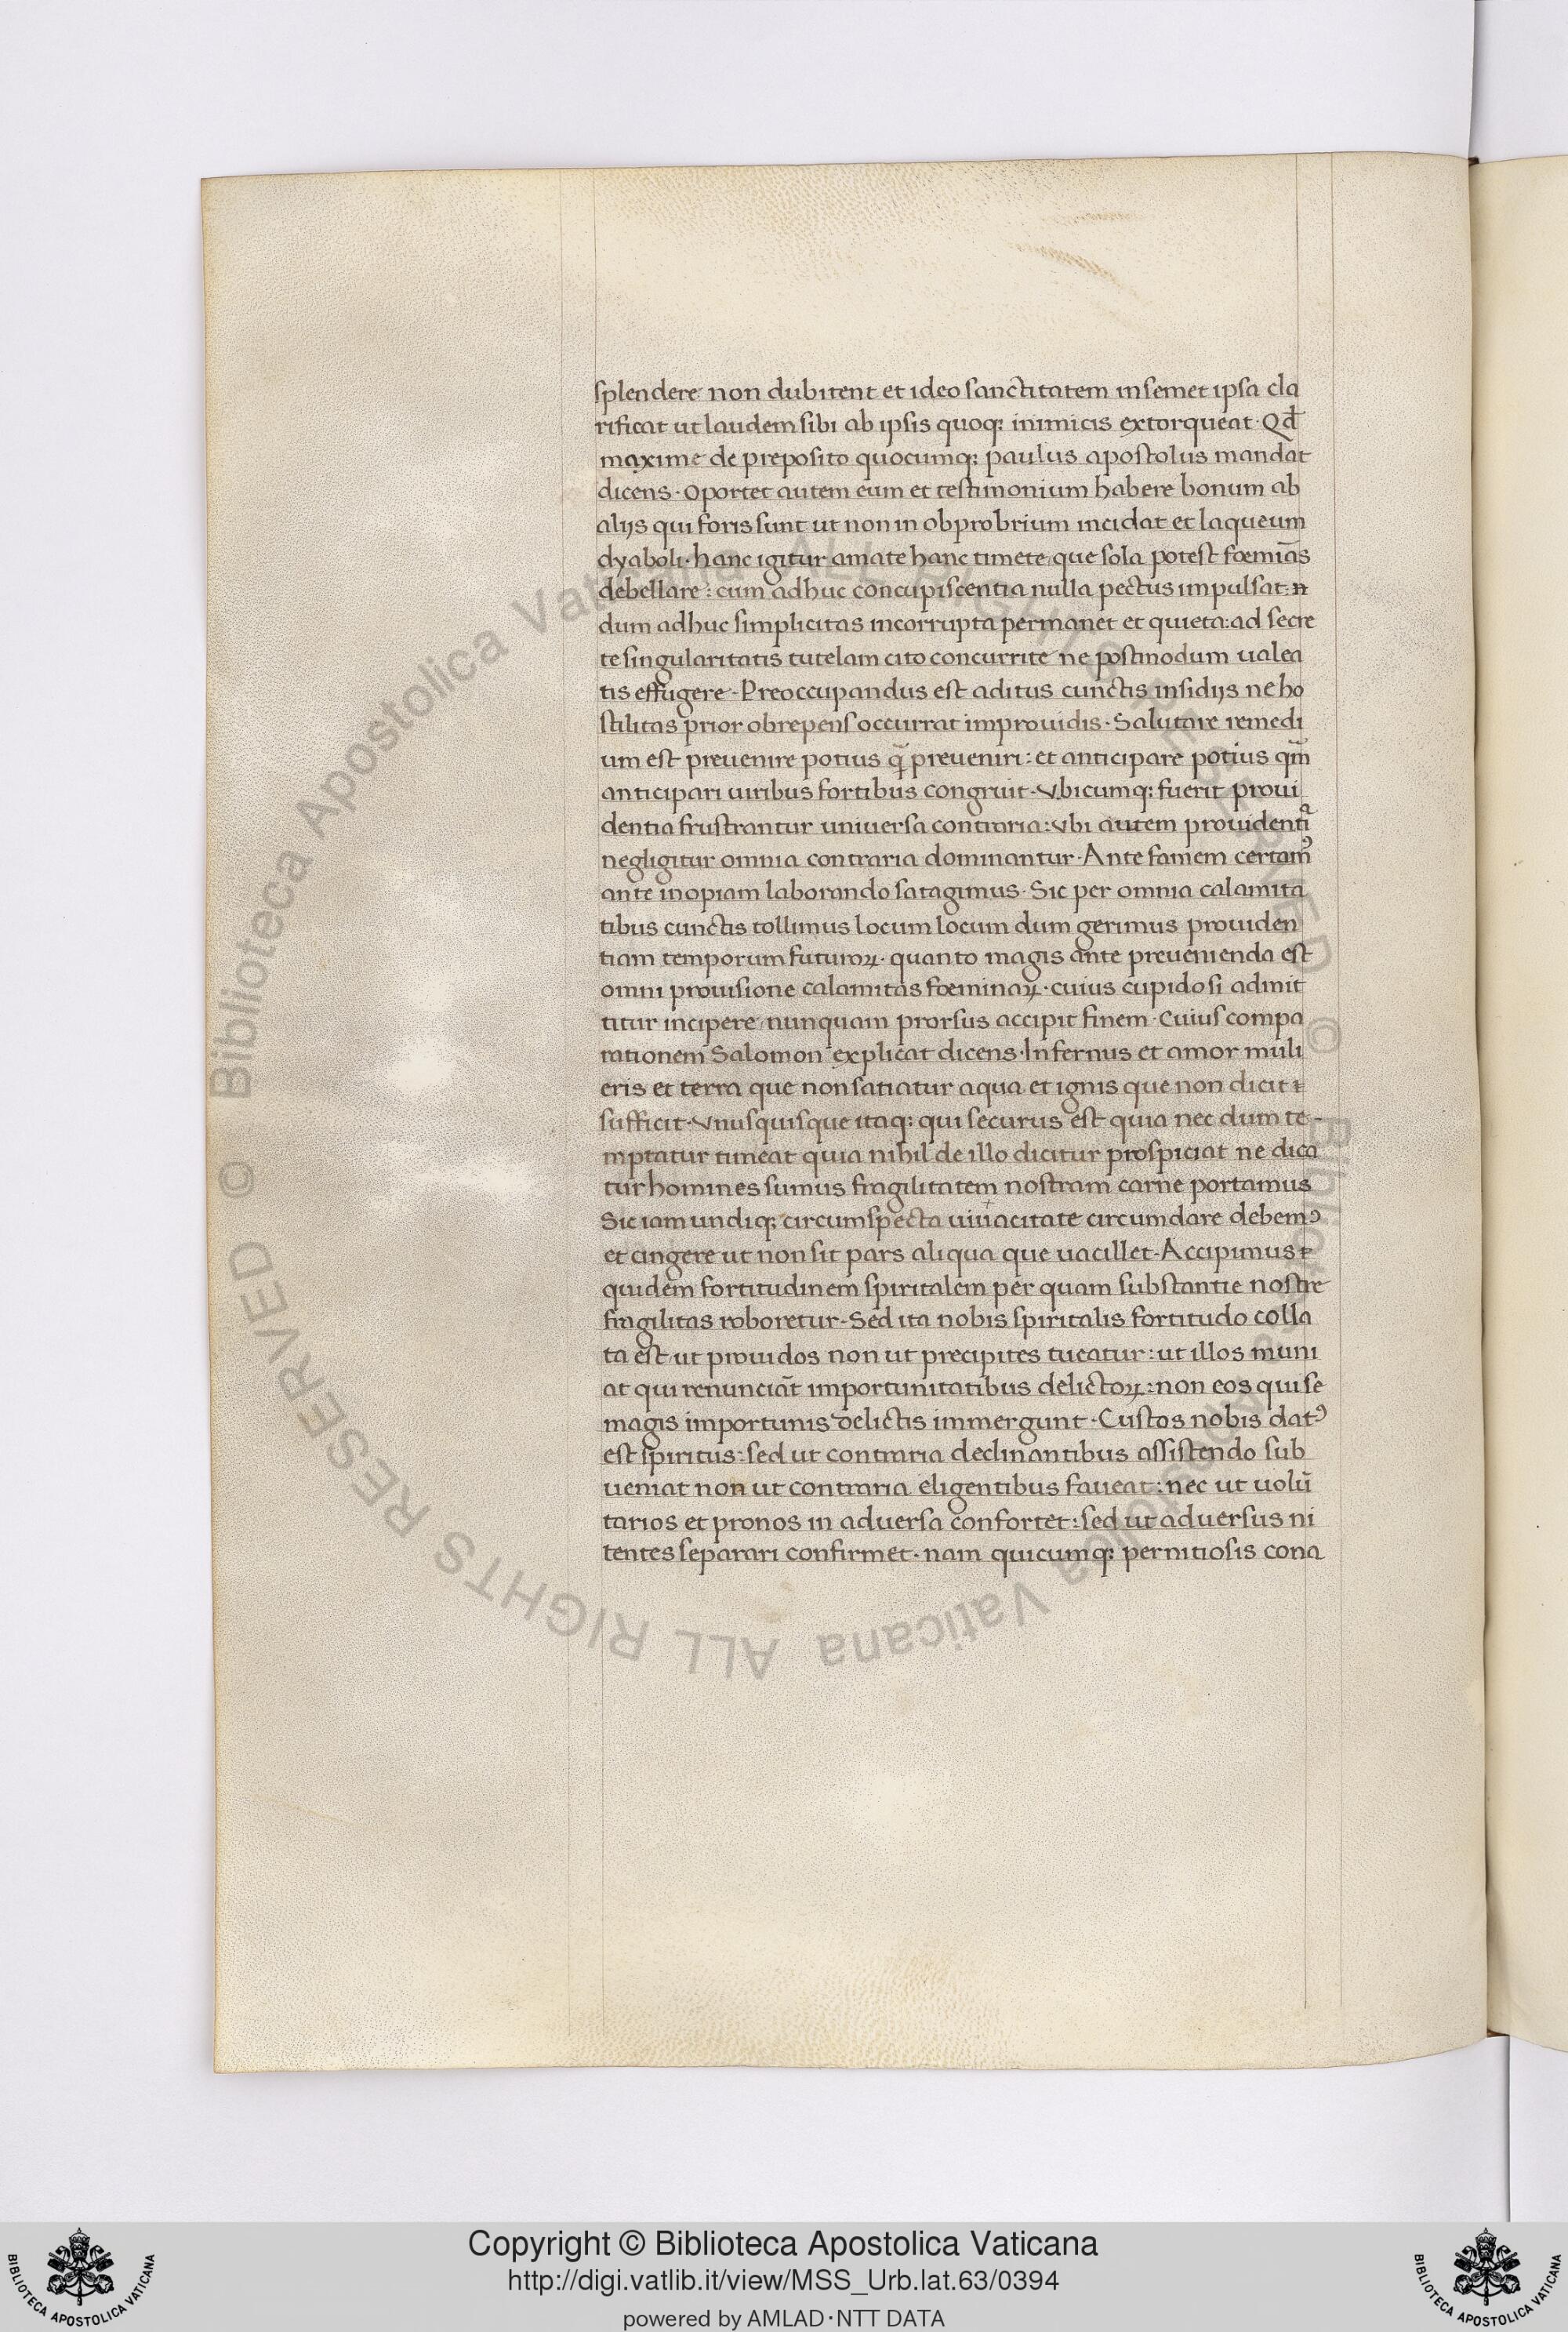 splendere non dubitent et ideo sanctitatem in semet ipsa cla
rificat ut laudem sibi ab ipsis quoq; inimicis extorqueat · Qđ
maxime de preposito quocumq; paulus apostolus mandat
dicens · Oportet autem eum et testimonium habere bonum ab
alijs qui foris sunt ut non in obprobrium incidat et laqueum
dyaboli · hanc igitur amate hanc timete que sola potest foemiās
debellare : cum adhuc concupiscentia nulla pectus impulsat :
dum adhuc simplicitas incorrupta permanet et quieta : ad secre
te singularitatis tutelam cito concurrite ne postmodum ualea
tis effugere · Preoccupandus est aditus cunctis insidijs ne ho
stilitas prior obrepens occurrat improuidis · Salutare remedi
um est preuenire potius q̃ preueniri : et anticipare potius qm̃
anticipari uiribus fortibus congruit · Vbicumq; fuerit proui
dentia frustrantur uniuersa contraria : vbi autem prouidentiᵃ
negligitur omnia contraria dominantur · Ante famem certamꝰ
ante inopiam laborando satagimus · Sic per omnia calamita
tibus cunctis tollimus locum locum dum gerimus prouiden
tiam temporum futuroꝝ · quanto magis ante preuenienda est
omni prouisione calamitas foeminaꝝ · cuius cupido si admit
titur incipere nunquam prorsus accipit finem · Cuius compa
rationem Salomon explicat dicens · Infernus et amor muli
eris et terra que non satiatur aqua et ignis que non dicit
sufficit · Vnusquisque itaq; qui securus est quia nec dum te-
mptatur timeat quia nihil de illo dicitur prospiciat ne dica
tur homines sumus fragilitatem nostram carne portamus
Sic iam undiq; circumspecta uiuacitate circumdare debemꝰ
et cingere ut non sit pars aliqua que uacillet · Accipimus
quidem fortitudinem spiritalem per quam substantie nostre
fragilitas roboretur · Sed ita nobis spiritalis fortitudo colla
ta est ut prouidos non ut precipites tueatur : ut illos muni
at qui renunciāt importunitatibus delictoꝝ : non eos qui se
magis importunis delictis immergunt · Custos nobis datꝰ
est spiritus : sed ut contraria declinantibus assistendo sub
ueniat non ut contraria eligentibus faueat : nec ut uolū
tarios et pronos in aduersa confortet : sed ut aduersus ni
tentes separari confirmet · nam quicumq; pernitiosis cona
© Biblioteca Apostolica Vaticana ALL RIGHTS RESERVED © Biblioteca Apostolica Vaticana ALL RIGHTS RESERVED
Copyright © Biblioteca Apostolica Vaticana
http://digi.vatlib.it/view/MSS_Urb.lat.63/0394
powered by AMLAD·NTT DATA
BIBLIOTECA APOSTOLICA VATICANA
BIBLIOTECA APOSTOLICA VATICANA